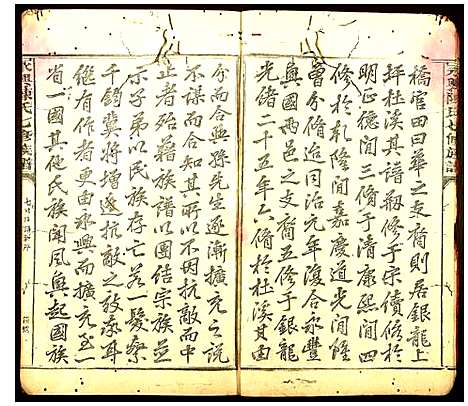 橋官田曰華之支裔則居銀龍上
坪杜溪其譜剏修于宋債修於
明正德間三修于清康熙間四
修於乾隆間嘉慶道光間雖
曾分脩迨同治元年復合永豐
與國兩處支裔五修于銀龍
光緒二十五年六脩於杜溪其由
分而合與孫先生逐漸擴充之說
不謀而合知其所以不因抗敵而中
止者殆藉族譜以團結宗族並
示子弟以民族存亡若一髮繫
千鈞冀將增遂抗敵之敵愾耳
繼有作者更由永興而擴充至一
省一國其他民族聞風興起國族
陳氏七修族譜